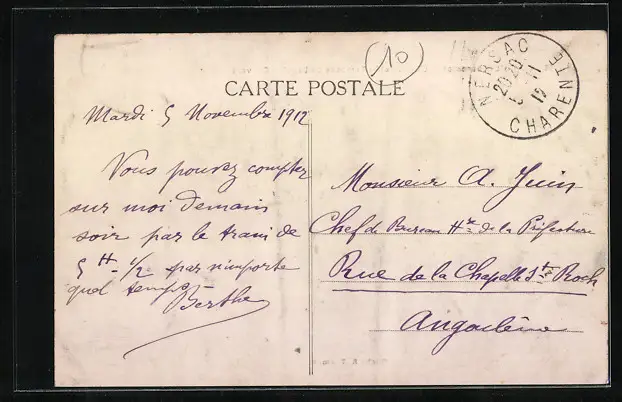 (10)
CARTE POSTALE
NERSAC
20 20
5 - 11
12
CHARENTE
Mardi 5 Novembre 1912
Vous pouvez compter
sur moi demain
soir par le train de
5 H - 1/2 - par n'importe
quel temps -
Berthe
Monsieur A. Juin
Chef de Bureau Hre de la Préfecture
Rue de la Chapelle St Roch
Angoulême